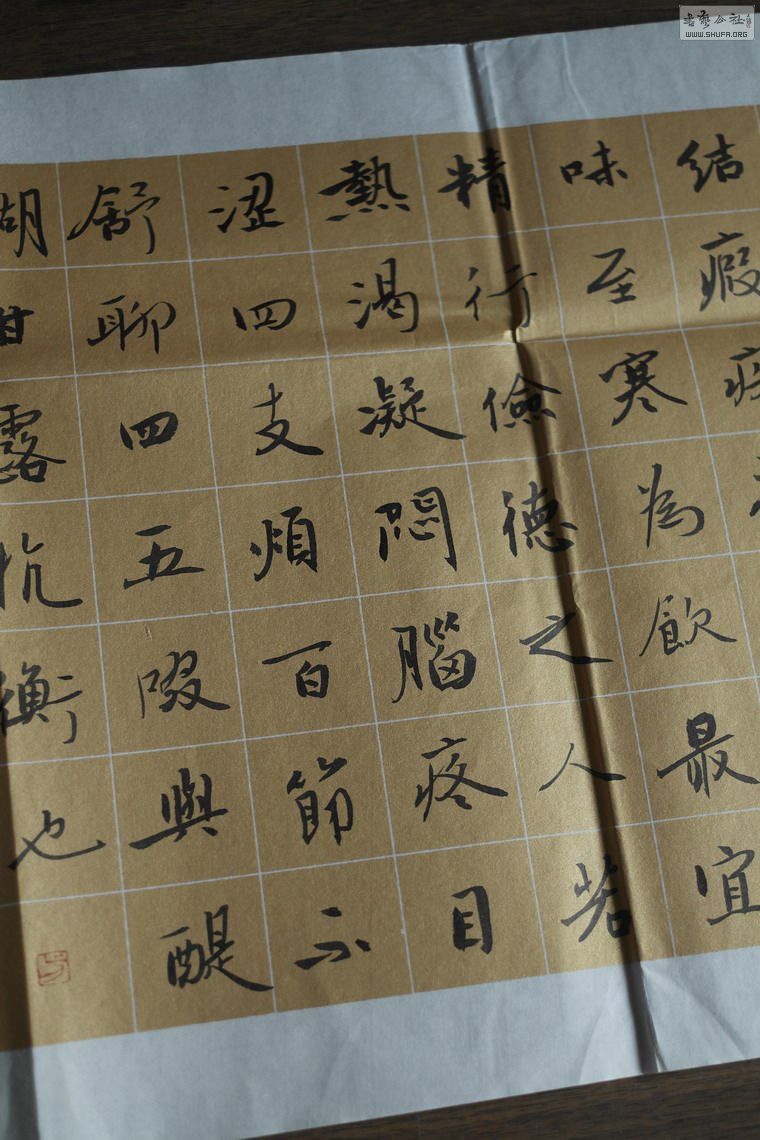 書藝公社
WWW.SHUFA.ORG
結瘕疾
味至寒為飲最宜
精行儉德之人若
熱渴凝悶腦疼目
涩四支煩百節不
舒聊四五啜與醍
醐甘露抗衡也